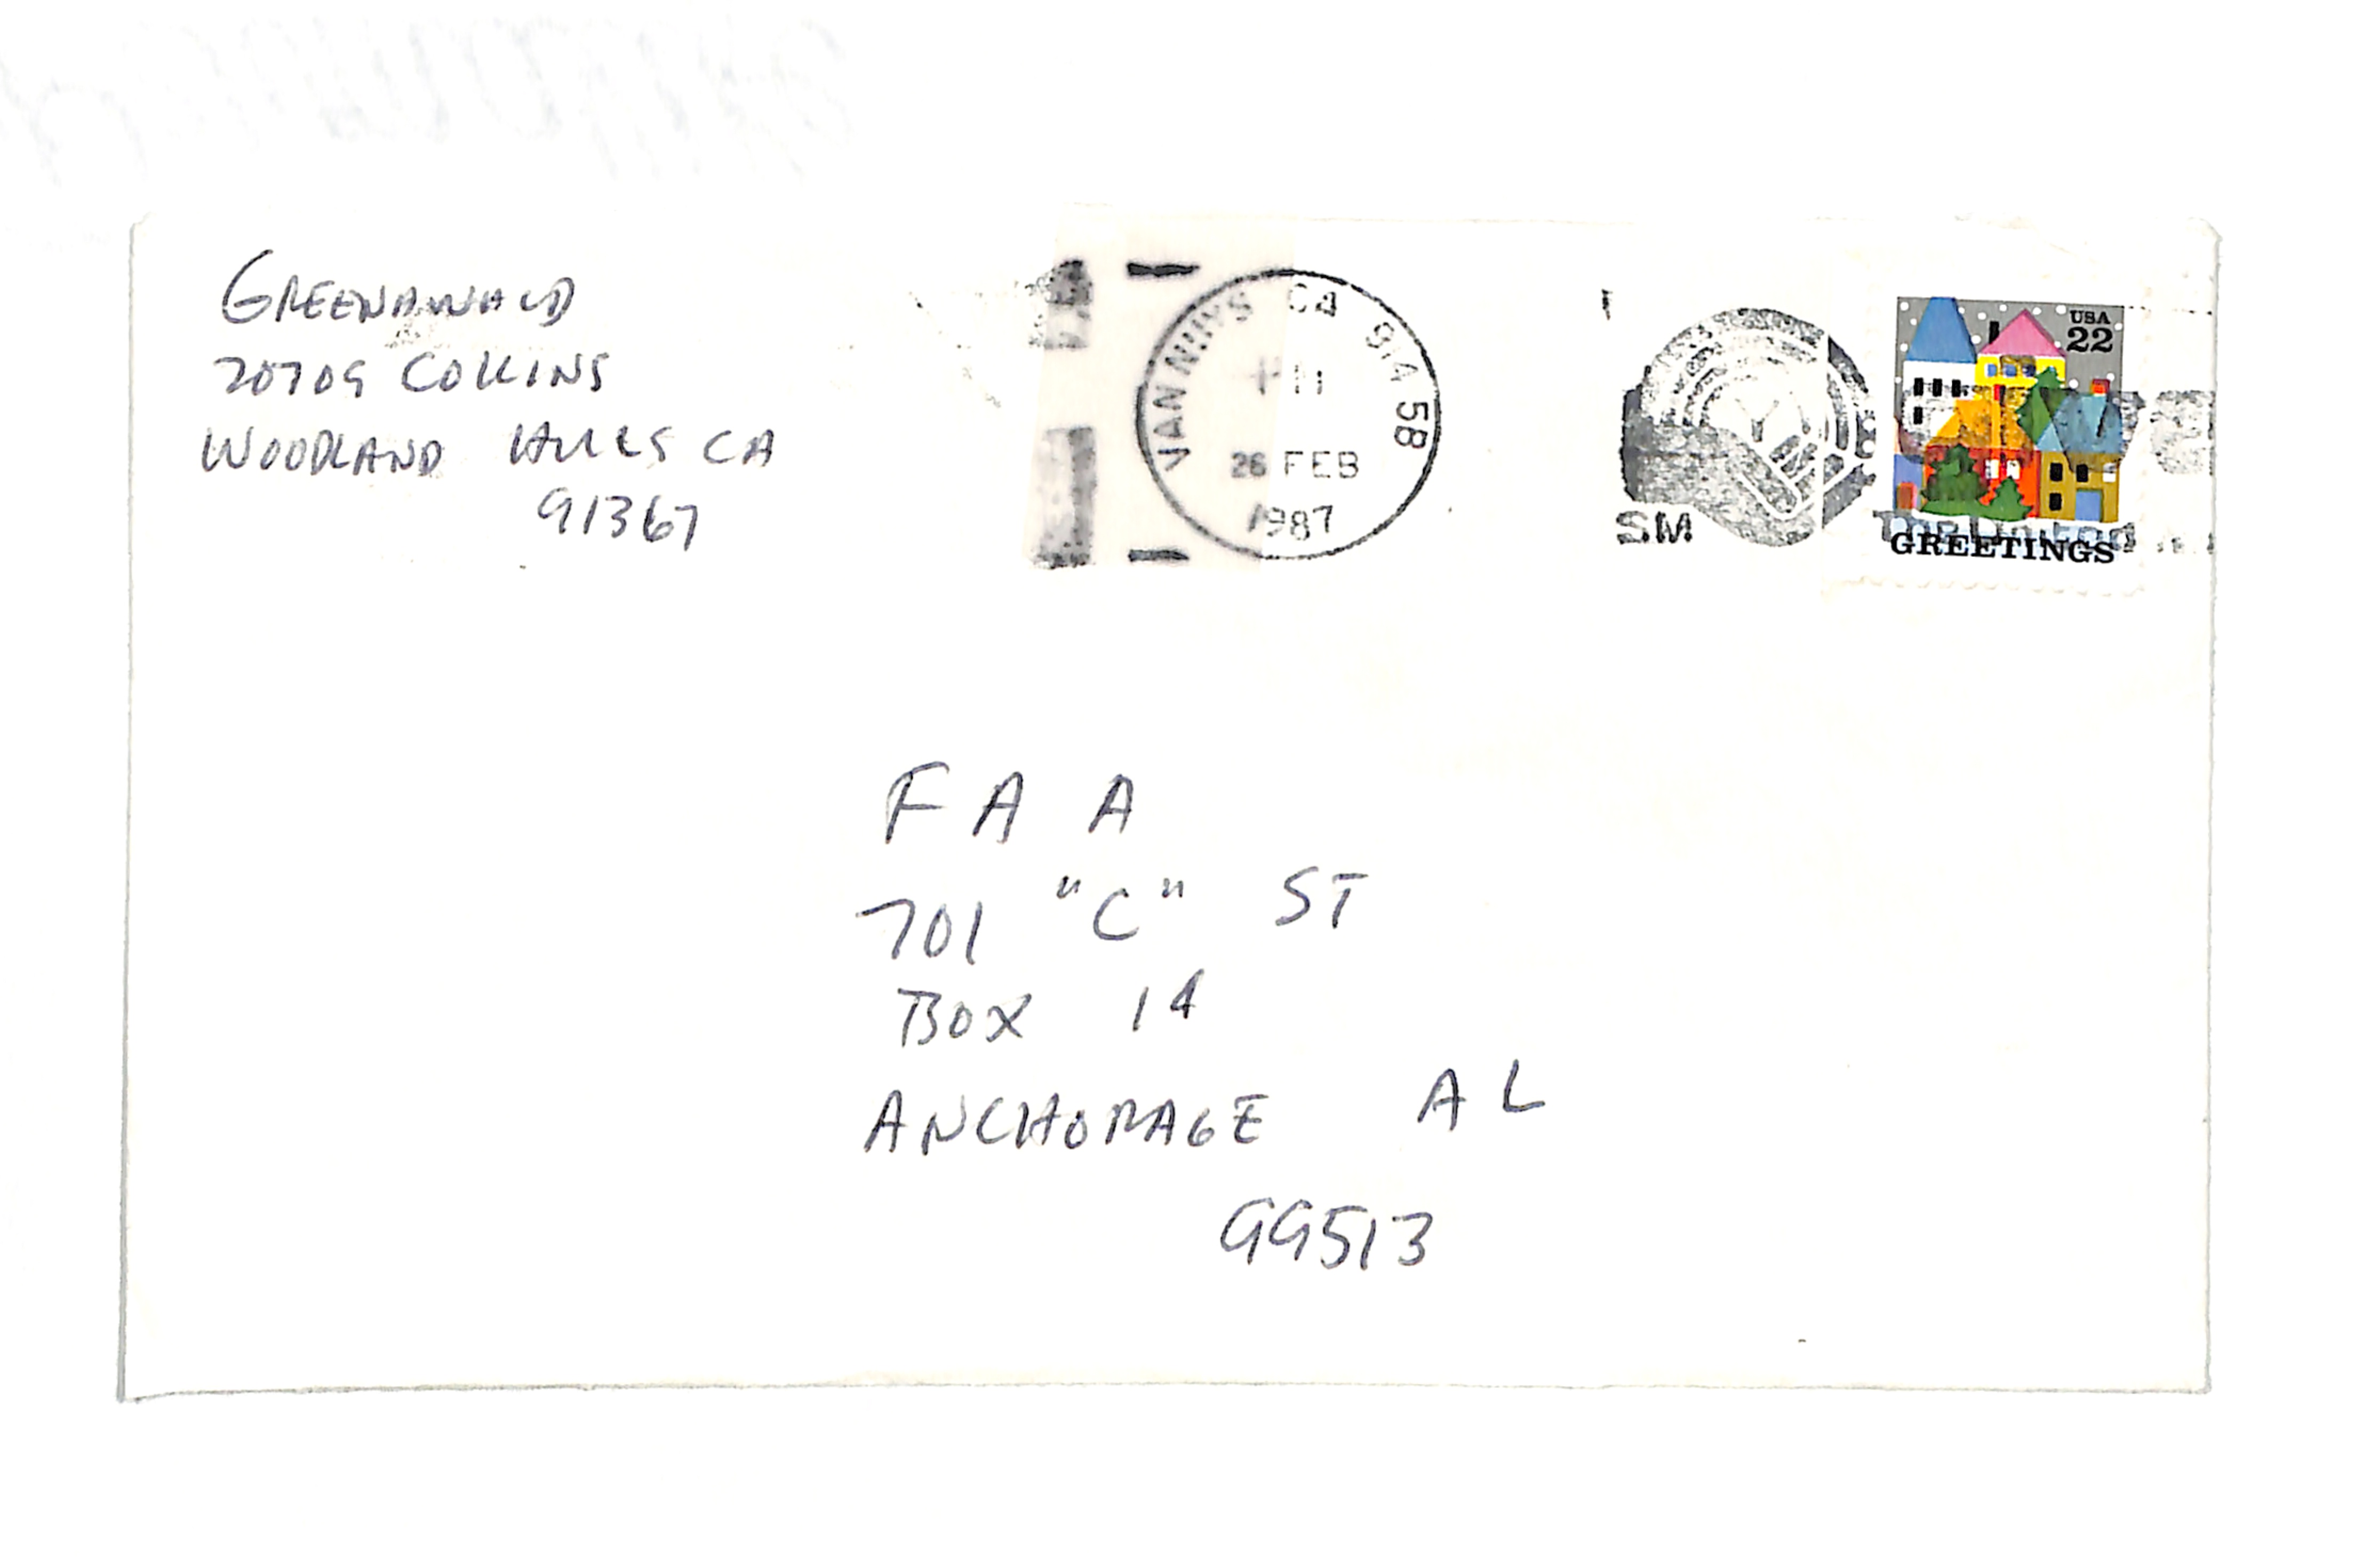 GREENAWALD
20709 COLLINS
WOODLAND HILLS CA
91367
VAN NUYS CA 914 5B
PM
26 FEB
1987
SM
The United
USA
22
GREETINGS
F A A
701 "C" ST
BOX 14
ANCHORAGE AL
99513